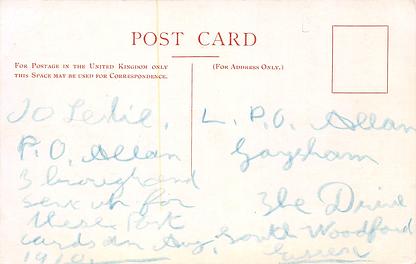 POST CARD
FOR POSTAGE IN THE UNITED KINGDOM ONLY
THIS SPACE MAY BE USED FOR CORRESPONDENCE.
(FOR ADDRESS ONLY.)
To Leslie.
P.O. Allan
3 brought and
sent up for
these Post
cards on Aug,
1910.
L. P.O. Allan
Gaysham
The Drive
South Woodford
Essex